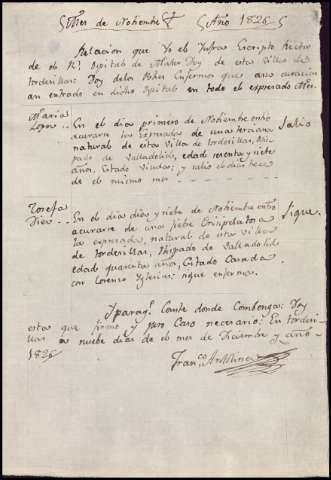 Mes de Nobiembre Año 1826
Relacion que Yo el Infras Escripto Rector
de el Rl Ospital de Mater Dey de esta Villa de
tordesillas: Doy delos Pobres Enfermos que a su curacion
an entrado en dicho Ospital en todo el expresado Mes.
Maria
Lopez .. En el dia primero de Nobiembre entro
acurarse los Expresada de una terciana Salio
natural de esta Villa de tordesillas, Obis-
pado de Valladolid, edad sesenta y siete
años, Estado Viuda; y salio el dia trece
de el mismo mes
Josefa
Diez .. En el dia diez y siete de Nobiembre entro
acurarse de una fiebre Erisipelatosa Sigue.
la expresada, natural de esta villa
de tordesillas, Obispado de Valladolid
edad quarenta años, Estado Casada
con Lorenzo Yglesias: sigue enferma.
Y para q.e Conste donde Combenga: Doy
esta que firmo y juro Caso necesario: En tordesi-
llas a nuebe dias de el mes de Diciembre y año
1826
Fran.co